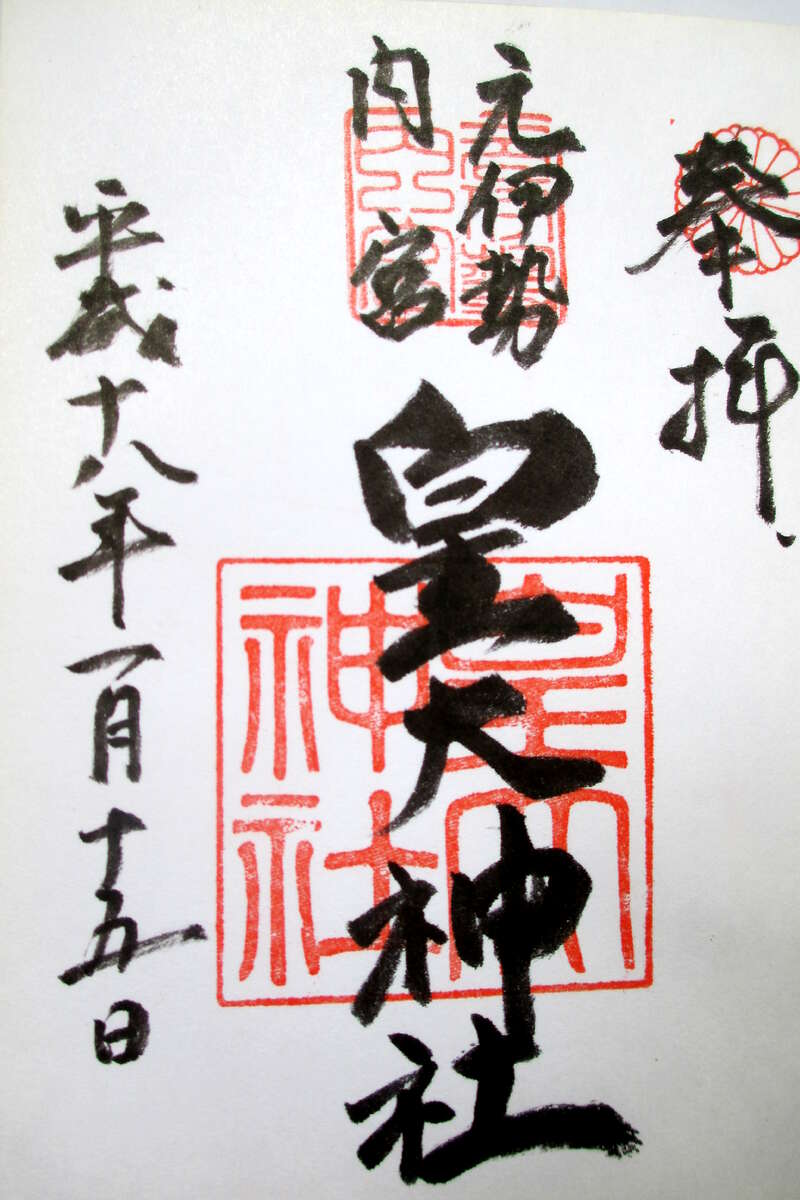 奉拝
元伊勢
内宮
皇大神社
平成十八年一月十五日
皇大神社